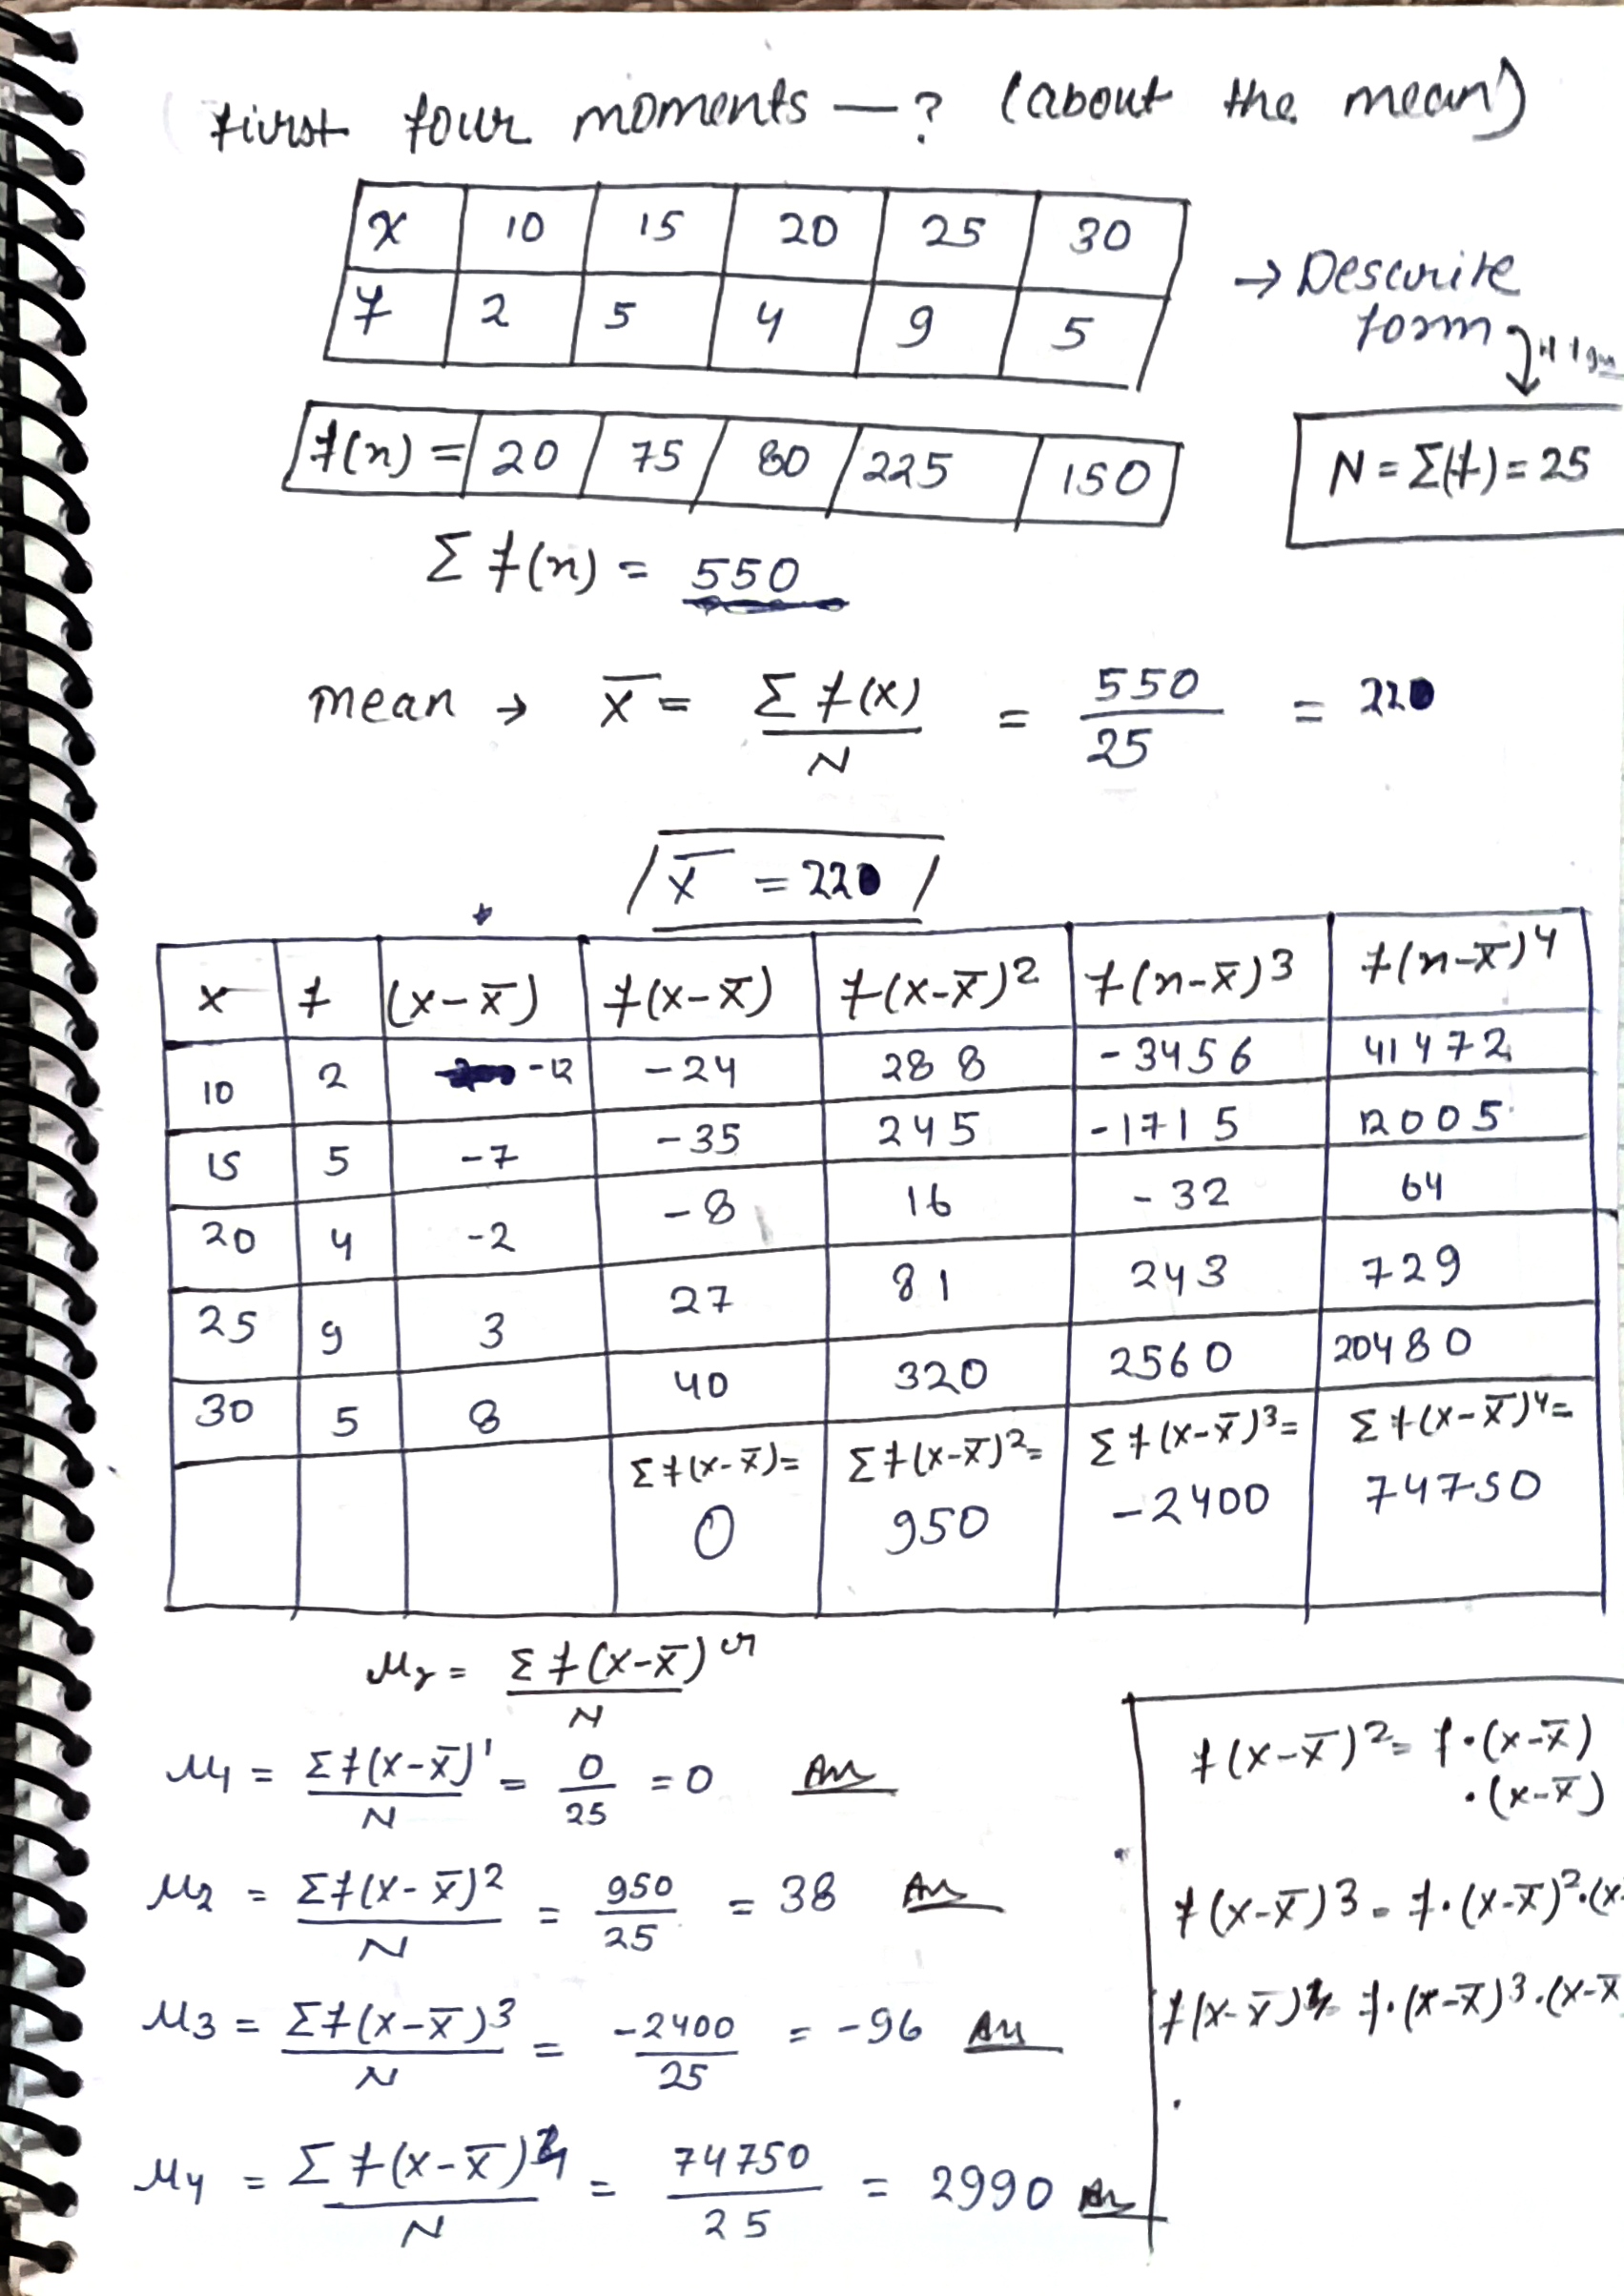 first four moments — ? (about the mean)
x 10 15 20 25 30
f 2 5 4 9 5
→ Descrite
form
f(n) = 20 75 80 225 150
N = Σ(f) = 25
Σ f(n) = 550
mean → x̄ = Σ f(x) / N = 550 / 25 = 22
x̄ = 22
x f (x-x̄) f(x-x̄) f(x-x̄)2 f(n-x̄)3 f(n-x̄)4
10 2 -12 -24 288 -3456 41472
15 5 -7 -35 245 -1715 12005
20 4 -2 -8 16 -32 64
25 9 3 27 81 243 729
30 5 8 40 320 2560 20480
Σ f(x-x̄)= Σ f(x-x̄)2= Σ f(x-x̄)3= Σ f(x-x̄)4=
0 950 -2400 74750
μr = Σ f(x-x̄)r / N
μ1 = Σ f(x-x̄)1 / N = 0 / 25 = 0 An
μ2 = Σ f(x-x̄)2 / N = 950 / 25 = 38 An
μ3 = Σ f(x-x̄)3 / N = -2400 / 25 = -96 An
μ4 = Σ f(x-x̄)4 / N = 74750 / 25 = 2990 An
f(x-x̄)2= f·(x-x̄)
·(x-x̄)
f(x-x̄)3 = f·(x-x̄)2·(x
f(x-x̄)4 f·(x-x̄)3·(x-x̄